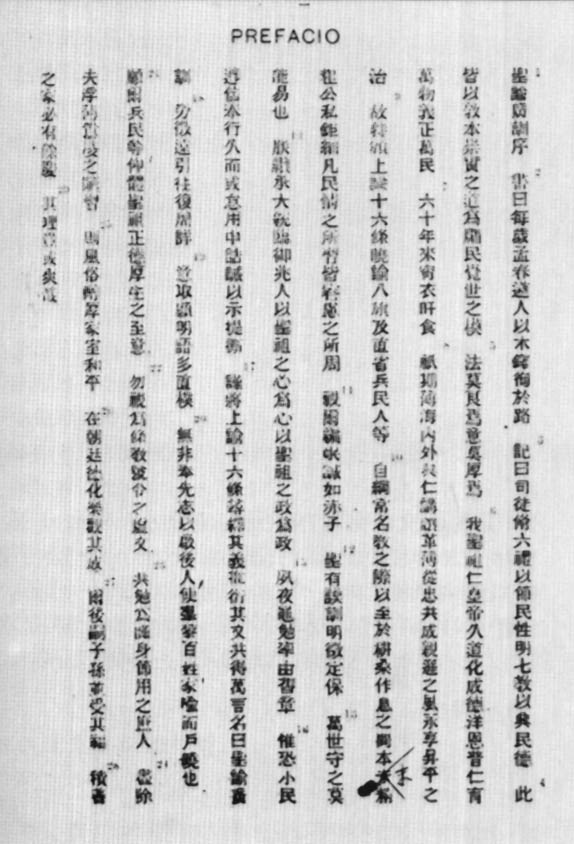 PREFACIO
聖諭廣訓序 書曰每歲孟春遒人以木鐸徇於路 記曰司徒脩六禮以節民性明七教以興民德 此
皆以敦本崇實之道為牖民覺世之模 法莫良焉意莫厚焉 我聖祖仁皇帝久道化成德洋恩普仁育
萬物義正萬民 六十年來宵衣旰食 祗期薄海內外興仁講讓革薄從忠共成親遜之風永享昇平之
治 故特頒上諭十六條曉諭八旗及直省兵民人等 自綱常名教之際以至於耕桑作息之間本末精
粗公私鉅細凡民情之所習皆睿慮之所周 視爾編氓誠如赤子 聖有謨訓明徵定保 萬世守之莫
能易也 朕纘承大統臨御兆人以聖祖之心為心以聖祖之政為政 夙夜黽勉率由舊章 惟恐小民
遵信奉行久而或怠用申誥誡以示提撕 謹將上諭十六條尋繹其義推衍其文共得萬言名曰聖諭廣
訓 旁徵遠引往復周詳 意取顯明語多直樸 無非奉先志以啟後人使羣黎百姓家喻而戶曉也
願爾兵民等仰體聖祖正德厚生之至意 勿視為條教號令之虛文 共勉為謹身節用之庶人 盡除
夫浮薄囂凌之陋習 則風俗醇厚家室和平 在朝廷德化樂觀其成 爾後嗣子孫並受其福 積善
之家必有餘慶 其理豈或爽哉